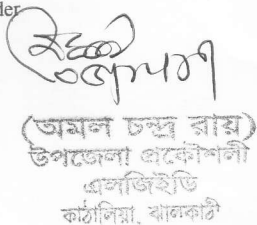 der
(অমল চন্দ্র রায়)
উপজেলা প্রকৌশলী
এলজিইডি
কাঠালিয়া, ঝালকাঠী